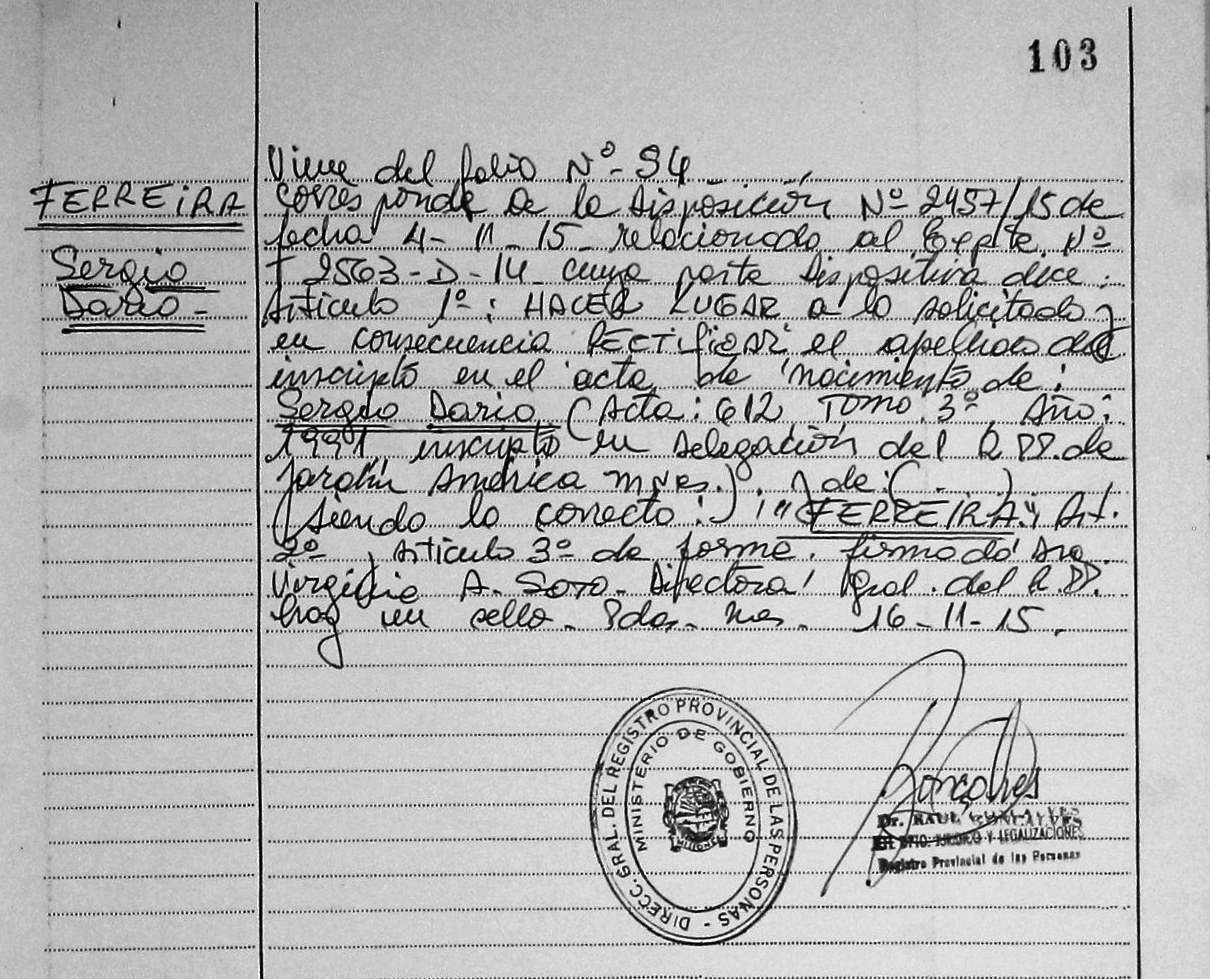 103
Viene del folio Nº-94
FERREIRA
Sergio
Dario-
Corresponde a la Disposición Nº 2457/15 de
fecha 4-11-15- relacionado al Expte Nº
2563-D-14 cuya parte Dispositiva dice:
Artículo 1º: HACER LUGAR a lo solicitado y
en consecuencia RECTificar el apellido del
inscripto en el acta de nacimiento de:
Sergio Dario (Acta: 612, Tomo: 3º, Año:
1991, inscripto en Delegación del R.PP. de
Jardín América Mnes.). de: ( . )
(siendo lo correcto:) "FERREIRA" Art.
2º, Artículo 3º de forma. firmado Dra.
Virginia A. Soto. Directora Gral. del R.PP.
hay un sello. Pdas. Mnes. 16-11-15.
DIRECC. GRAL. DEL REGISTRO PROVINCIAL DE LAS PERSONAS -
MINISTERIO DE GOBIERNO
MISIONES
Goncalves
Dr. RAUL GONCALVES
DPTO. JURIDICO Y LEGALIZACIONES
Registro Provincial de las Personas